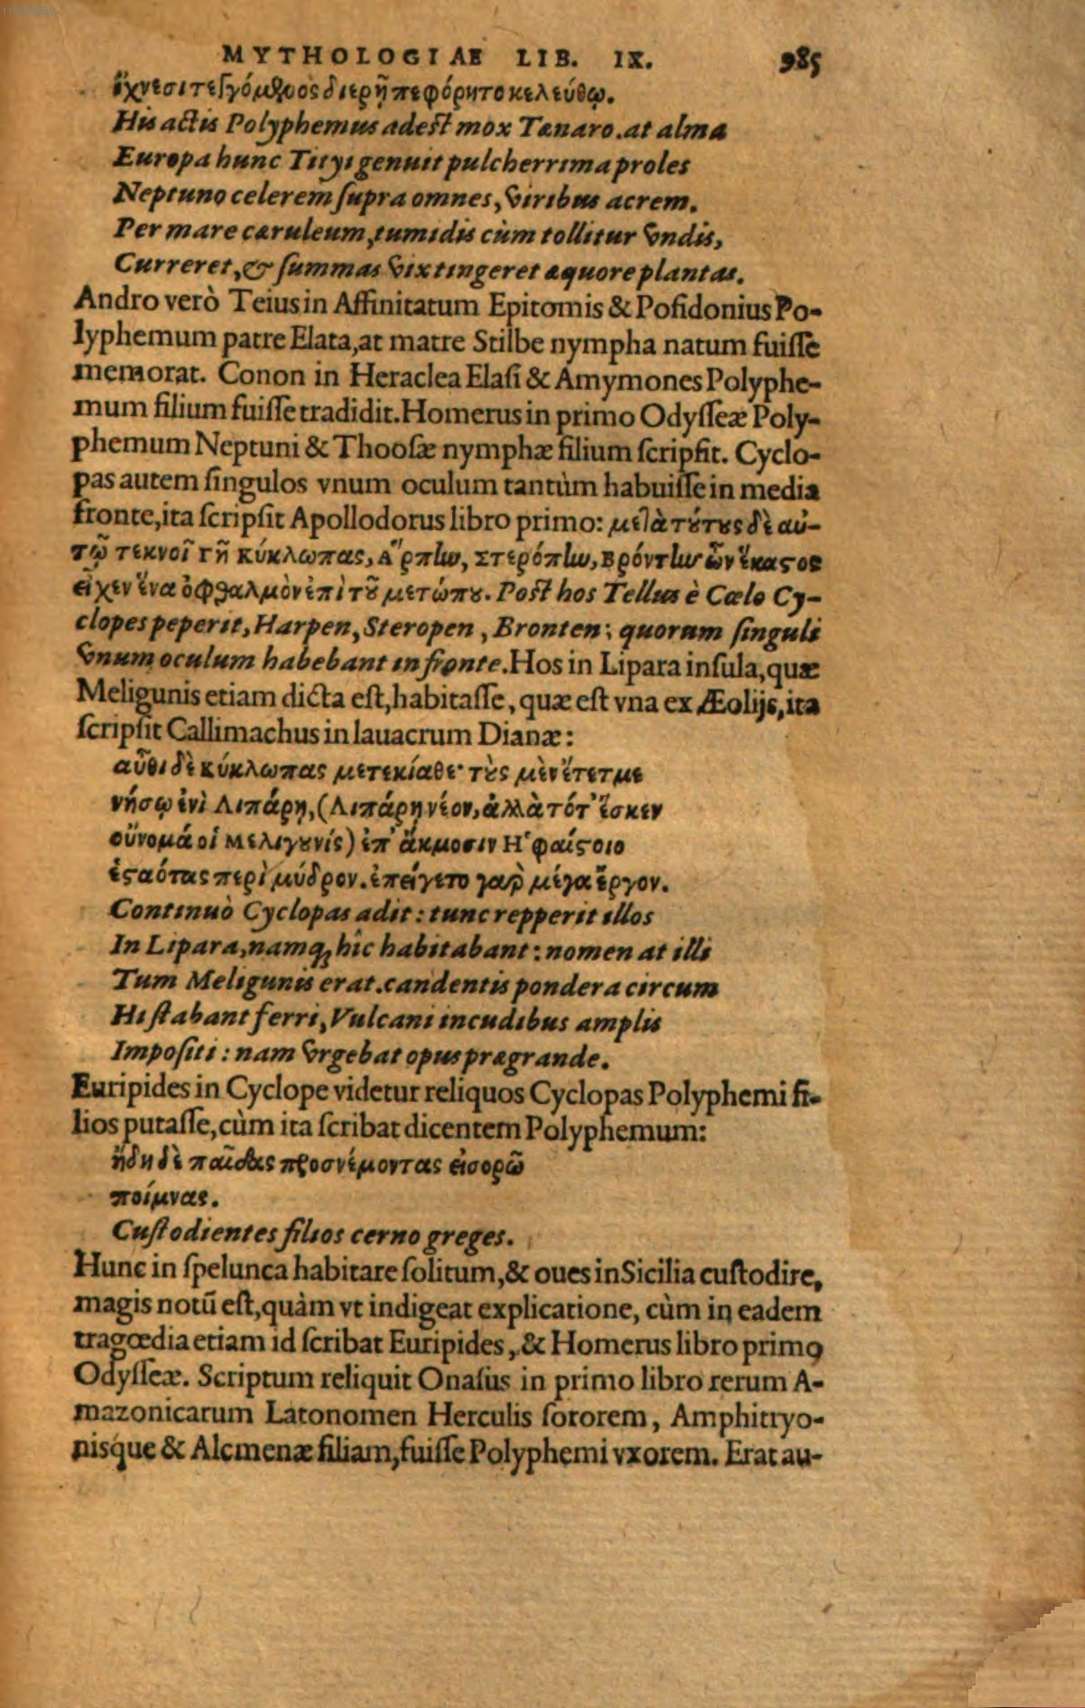 MYTHOLOGIAE LIB. IX. 985
ἴχνεσι τεγγόμενος διερῆ πεφόρητο κελεύθῳ.
His actis Polyphemus adest mox Tænaro. at alma
Europa hunc Tityi genuit pulcherrima proles
Neptuno celerem supra omnes, viribus acrem.
Per mare cæruleum, tumidis cùm tollitur vndis,
Curreret, & summas vix tingeret æquore plantas.
Andro verò Teius in Affinitatum Epitomis & Posidonius Po-
lyphemum patre Elata, at matre Stilbe nympha natum fuisse
memorat. Conon in Heraclea Elasi & Amymones Polyphe-
mum filium fuisse tradidit. Homerus in primo Odysseæ Poly-
phemum Neptuni & Thoosæ nymphæ filium scripsit. Cyclo-
pas autem singulos vnum oculum tantùm habuisse in media
fronte, ita scripsit Apollodorus libro primo: μετὰ τούτους δὲ αὐ-
τῷ τεκνοῖ γῆ κύκλωπας, Ἅρπην, Στερόπην, Βρόντην ὧν ἕκαστος
εἶχεν ἕνα ὀφθαλμὸν ἐπὶ τοῦ μετώπου. Post hos Tellus è Cœlo Cy-
clopes peperit, Harpen, Steropen, Bronten: quorum singuli
vnum oculum habebant in fronte. Hos in Lipara insula, quæ
Meligunis etiam dicta est, habitasse, quæ est vna ex Æolijs, ita
scripsit Callimachus in lauacrum Dianæ:
αὖθι δὲ κύκλωπας μετεκίαθε· τοὺς μὲν ἔτετμε
νήσῳ ἐνὶ Λιπάρῃ, (Λιπάρη νέον, ἀλλὰ τότ' ἔσκεν
οὔνομά οἱ Μελιγουνίς) ἐπ' ἄκμοσιν Ἡφαίστοιο
ἑσταότας περὶ μύδρον. ἐπείγετο γαρ μέγα ἔργον.
Continuò Cyclopas adit: tunc repperit illos
In Lipara, namq; hîc habitabant: nomen at illi
Tum Meligunis erat. candentis pondera circum
Hi stabant ferri, Vulcani incudibus amplis
Impositi: nam vrgebat opus prægrande.
Euripides in Cyclope videtur reliquos Cyclopas Polyphemi fi-
lios putasse, cùm ita scribat dicentem Polyphemum:
ἤδη δὲ παῖδας προσνέμοντας εἰσορῶ
ποίμνας.
Custodientes filios cerno greges.
Hunc in spelunca habitare solitum, & oues in Sicilia custodire,
magis notū est, quàm vt indigeat explicatione, cùm in eadem
tragœdia etiam id scribat Euripides, & Homerus libro primo
Odysseæ. Scriptum reliquit Onasus in primo libro rerum A-
mazonicarum Latonomen Herculis sororem, Amphitryo-
nisque & Alcmenæ filiam, fuisse Polyphemi vxorem. Erat au-